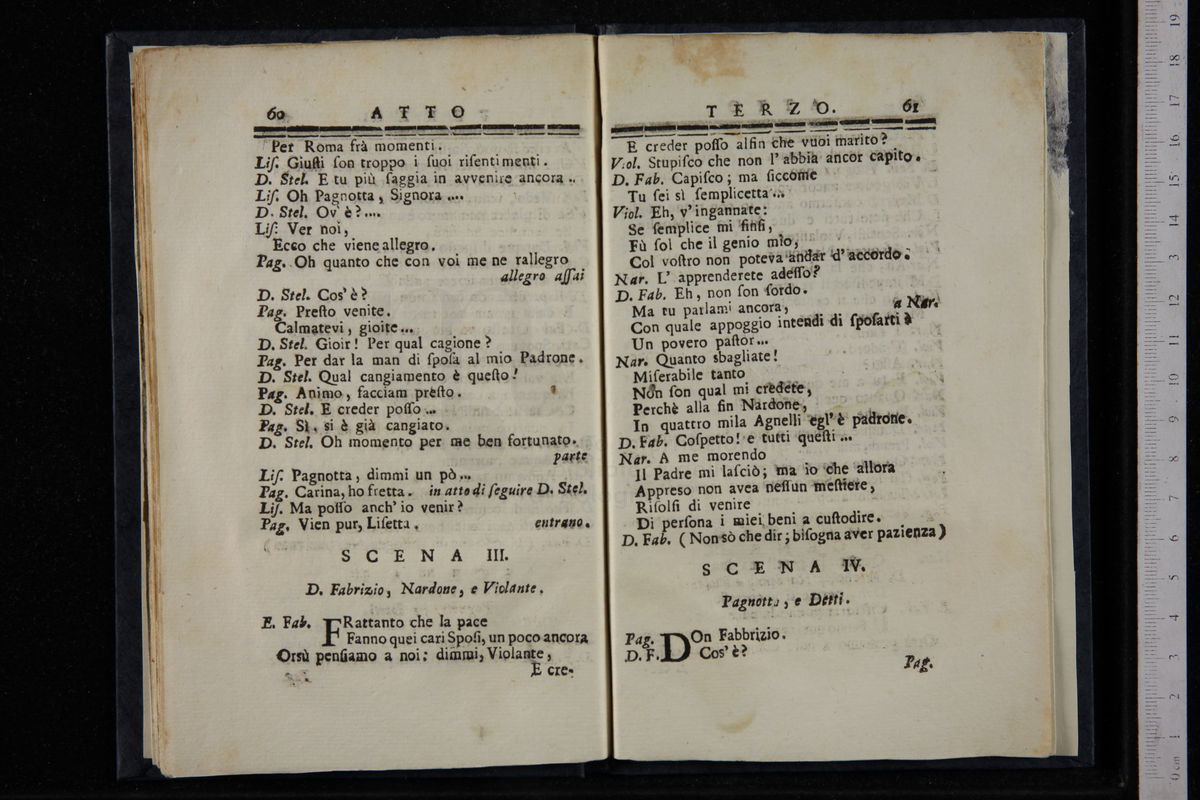 60 ATTO
Per Roma frà momenti.
Liſ. Giuſti ſon troppo i ſuoi riſentimenti.
D. Stel. E tu più ſaggia in avvenire ancora ..
Liſ. Oh Pagnotta, Signora ....
D. Stel. Ov' è?....
Liſ: Ver noi,
Ecco che viene allegro.
Pag. Oh quanto che con voi me ne rallegro
allegro aſſai
D. Stel. Cos' è?
Pag. Preſto venite.
Calmatevi, gioite...
D. Stel. Gioir! Per qual cagione?
Pag. Per dar la man di ſpoſa al mio Padrone.
D. Stel. Qual cangiamento è queſto!
Pag. Animo, facciam preſto.
D. Stel. E creder poſſo ...
Pag. Sì, si è già cangiato.
D. Stel. Oh momento per me ben fortunato.
parte
Liſ. Pagnotta, dimmi un pò...
Pag. Carina, ho fretta. in atto di ſeguire D. Stel.
Liſ. Ma poſſo anch' io venir?
Pag. Vien pur, Liſetta. entrano.
SCENA III.
D. Fabrizio, Nardone, e Violante.
E. Fab. FRattanto che la pace
Fanno quei cari Spoſi, un poco ancora
Orsù penſiamo a noi: dimmi, Violante,
E cre-
TERZO. 61
E creder poſſo alfin che vuoi marito?
Viol. Stupiſco che non l' abbia ancor capito.
D. Fab. Capiſco; ma ſiccome
Tu ſei sì ſemplicetta...
Viol. Eh, v' ingannate:
Se ſemplice mi finſi,
Fù ſol che il genio mio,
Col voſtro non poteva andar d' accordo.
Nar. L' apprenderete adeſſo?
D. Fab. Eh, non ſon ſordo.
Ma tu parlami ancora, a Nar.
Con quale appoggio intendi di ſpoſarti?
Un povero paſtor...
Nar. Quanto sbagliate!
Miſerabile tanto
Non ſon qual mi credete,
Perchè alla fin Nardone,
In quattro mila Agnelli egl' è padrone.
D. Fab. Coſpetto! e tutti queſti ...
Nar. A me morendo
Il Padre mi laſciò; ma io che allora
Appreso non avea neſſun meſtiere,
Riſolſi di venire
Di perſona i miei beni a cuſtodire.
D. Fab. (Non sò che dir; biſogna aver pazienza)
SCENA IV.
Pagnotta, e Detti.
Pag. DOn Fabbrizio.
D. F. Cos' è?
Pag.